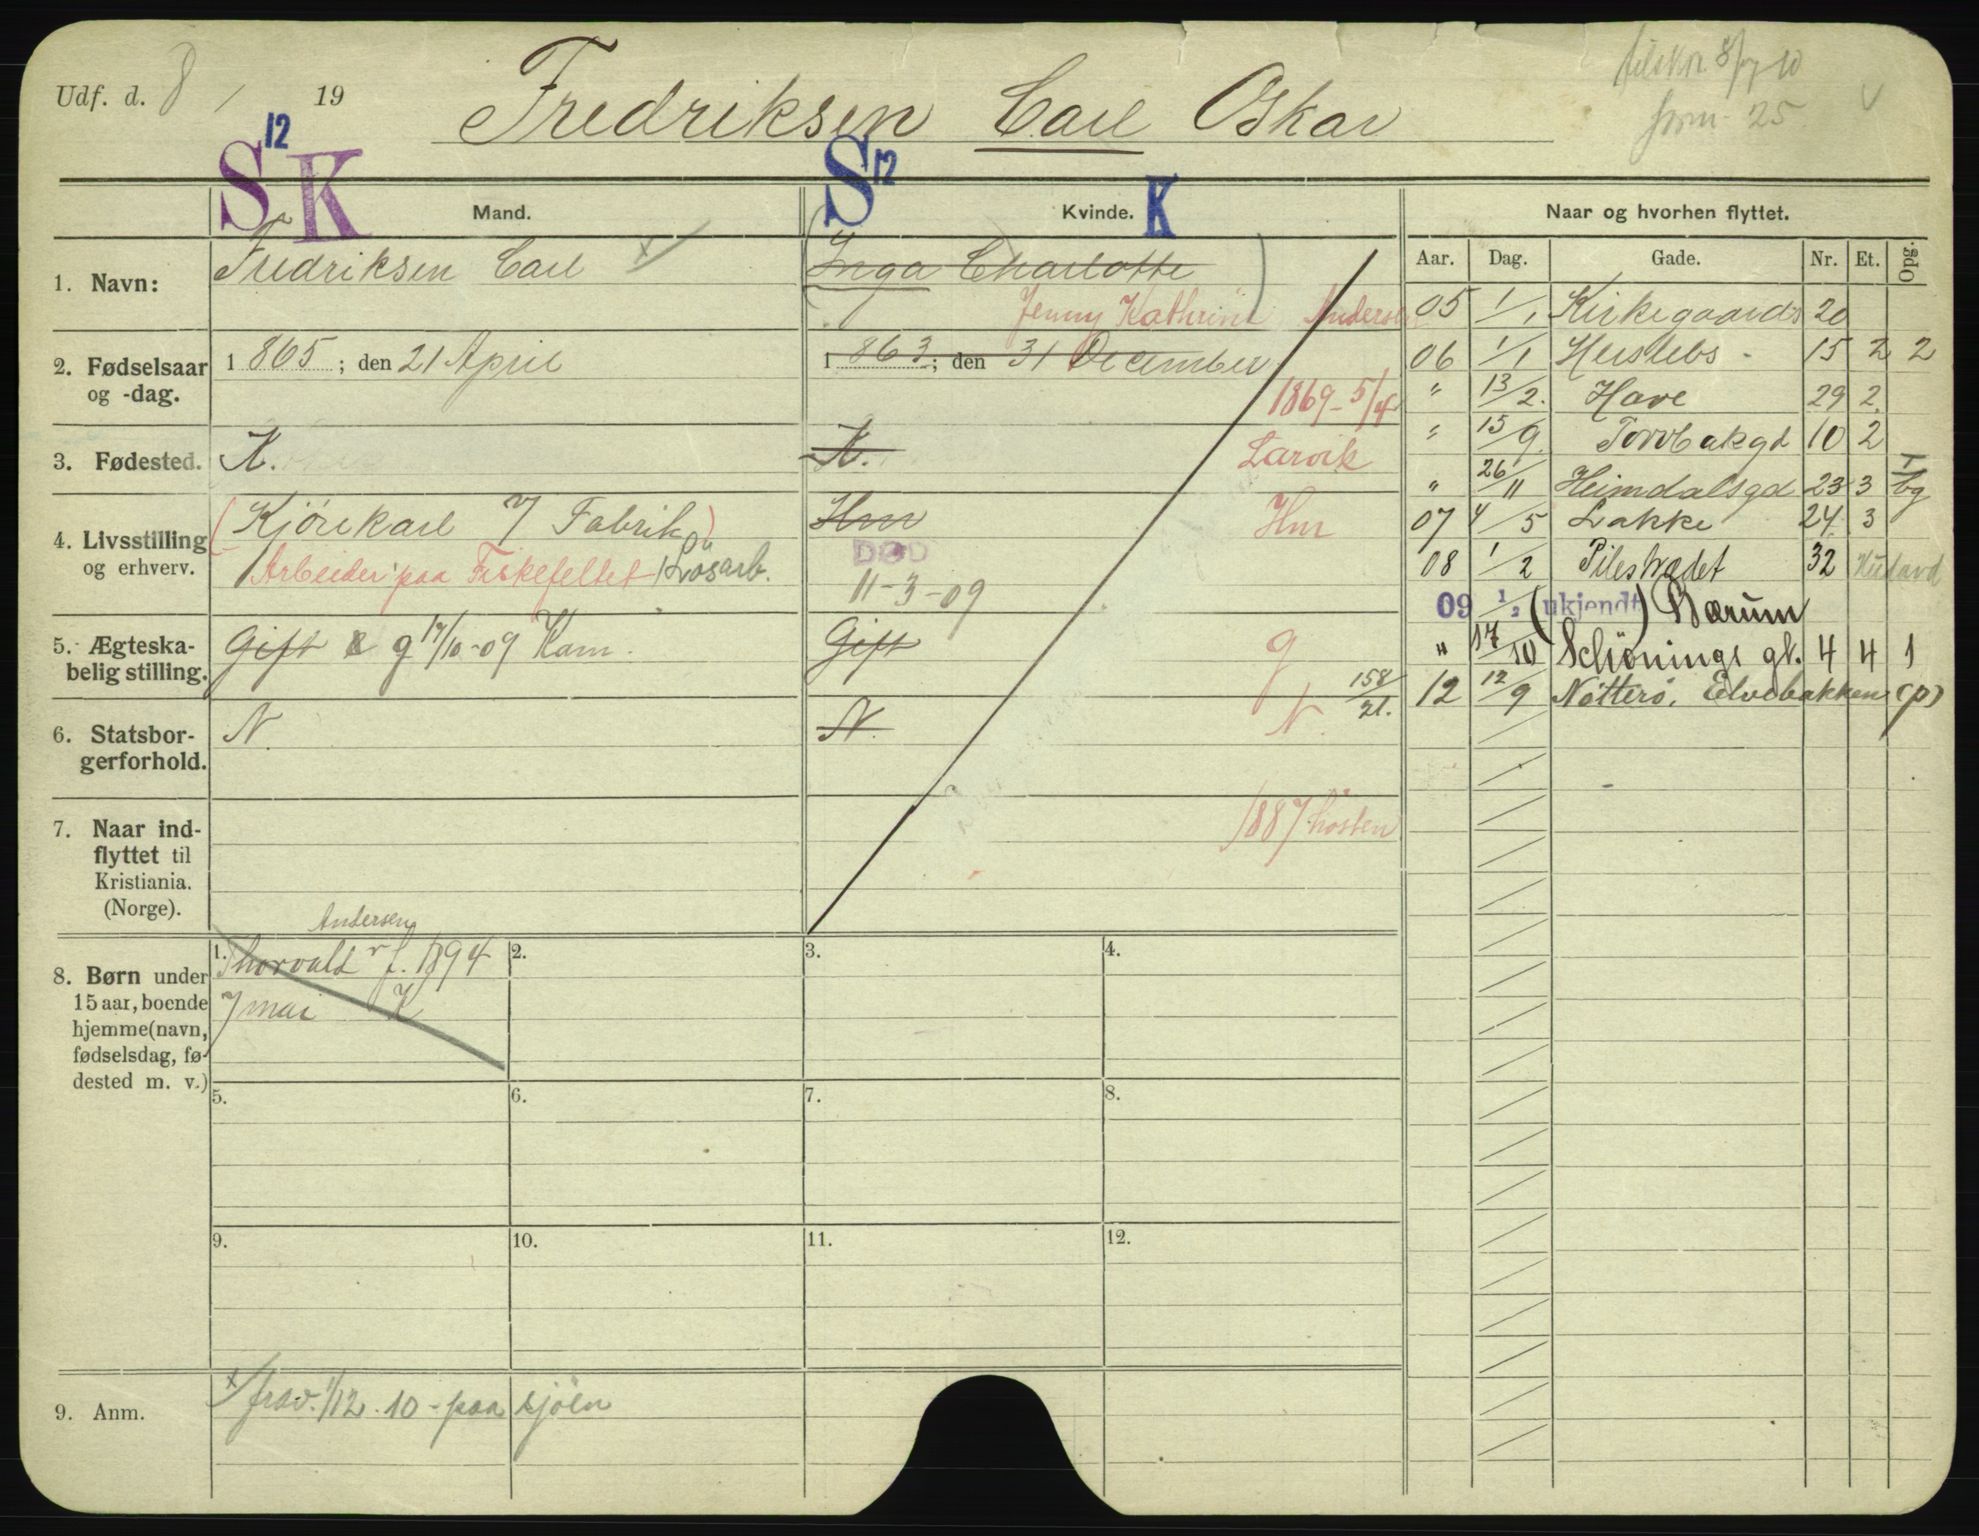 Udf. d. 8 / 19
Fredriksen Carl Oskar
25
S 12 K
S 12 K
Mand.
Kvinde.
Naar og hvorhen flyttet.
Aar. Dag. Gade. Nr. Et. Opg.
1. Navn:
Fredriksen Carl
Inga Charlotte
Jenny Kathrine Andersen
2. Fødselsaar
og -dag.
1 865 ; den 21 April
1 863 ; den 31 December
1869 - 5/4
3. Fødested.
K.
K.
Larvik
4. Livsstilling
og erhverv.
(Kjørekarl v/ Fabrik)
Arbeider paa Fiskefeltet Løsarb.
Hm
DØD
11-3-09
Hm
5. Ægteska-
belig stilling.
Gift g 17/10-09 Kam.
Gift
g
158/21.
6. Statsbor-
gerforhold.
N.
N.
N.
7. Naar ind-
flyttet til
Kristiania.
(Norge).
1887 høsten
05 1/1 Kirkegaards 20
06 1/1 Herslebs 15 2 2
" 13/2. Have 29 2.
" 15/9. Torvbakgd 10 2
" 26/11 Heimdalsgd 23 3
07 4/5 Lakke 24. 3
08 1/2 Pilestrædet 32
09 1/2 (ukjendt) Bærum
" 17/10 Schønings gt. 4 4 1
12 12/9 Nøtterø, Elvebakken (p)
8. Børn under
15 aar, boende
hjemme (navn,
fødselsdag, fø-
dested m. v.)
Andersen
1. Thorvald f. 1894
7 mai K
2.
3.
4.
5.
6.
7.
8.
9.
10.
11.
12.
9. Anm.
x/ frav. 1/12. 10 - paa sjøen